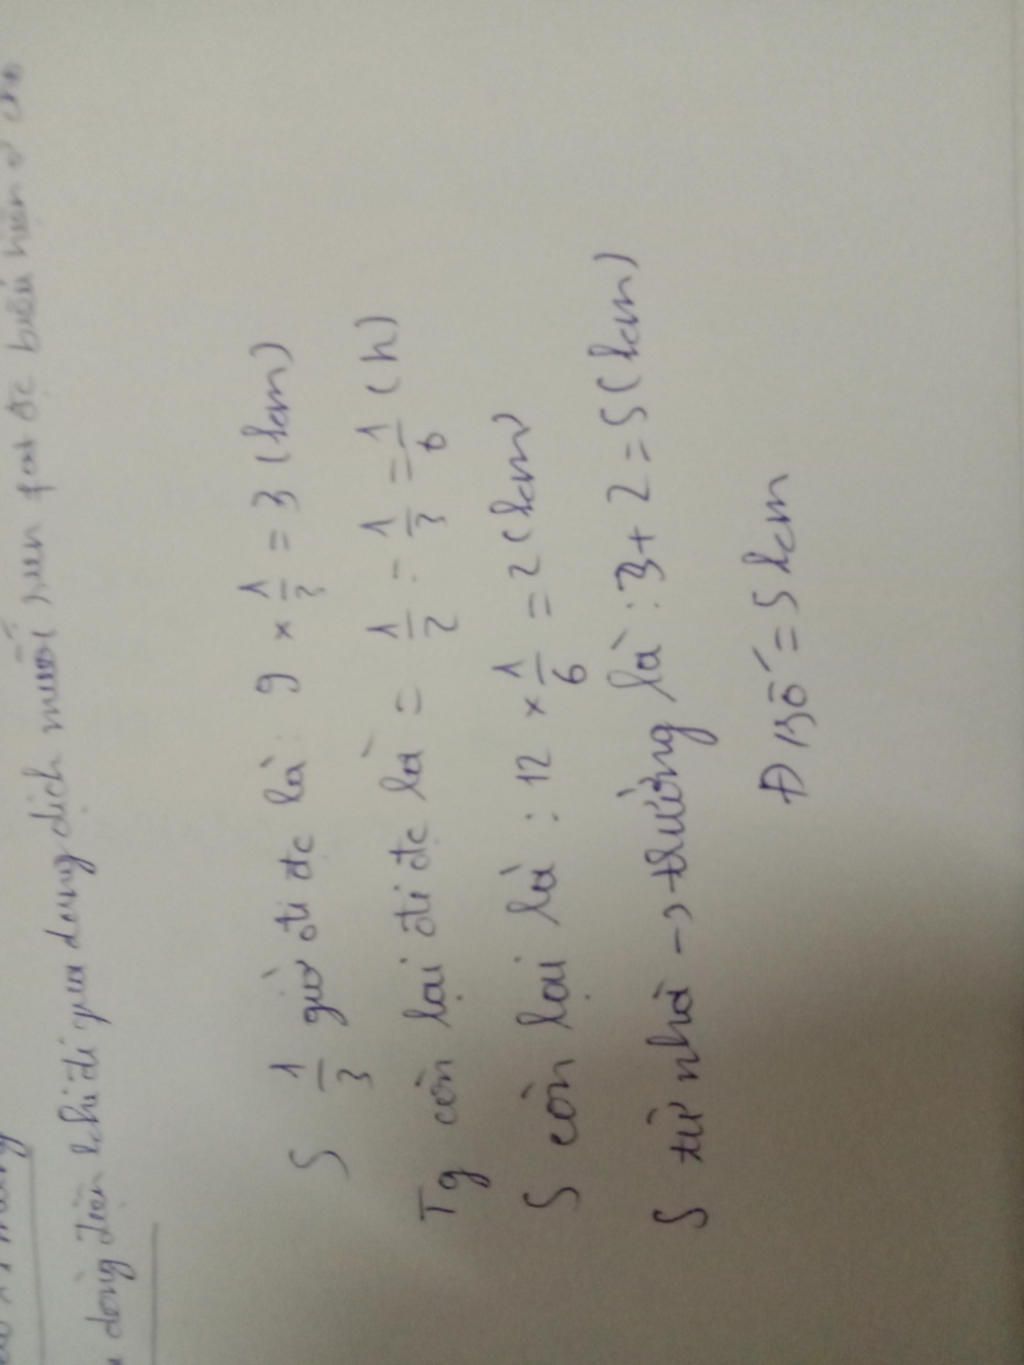 dòng điện khi đi qua dung dịch muối
S 1/3 giờ đi đc là: 9 × 1/3 = 3 (km)
Tg còn lại đi đc là = 1/2 - 1/3 = 1/6 (h)
S còn lại là : 12 × 1/6 = 2 (km)
S từ nhà -> trường là : 3 + 2 = 5 (km)
Đ Số = 5 km